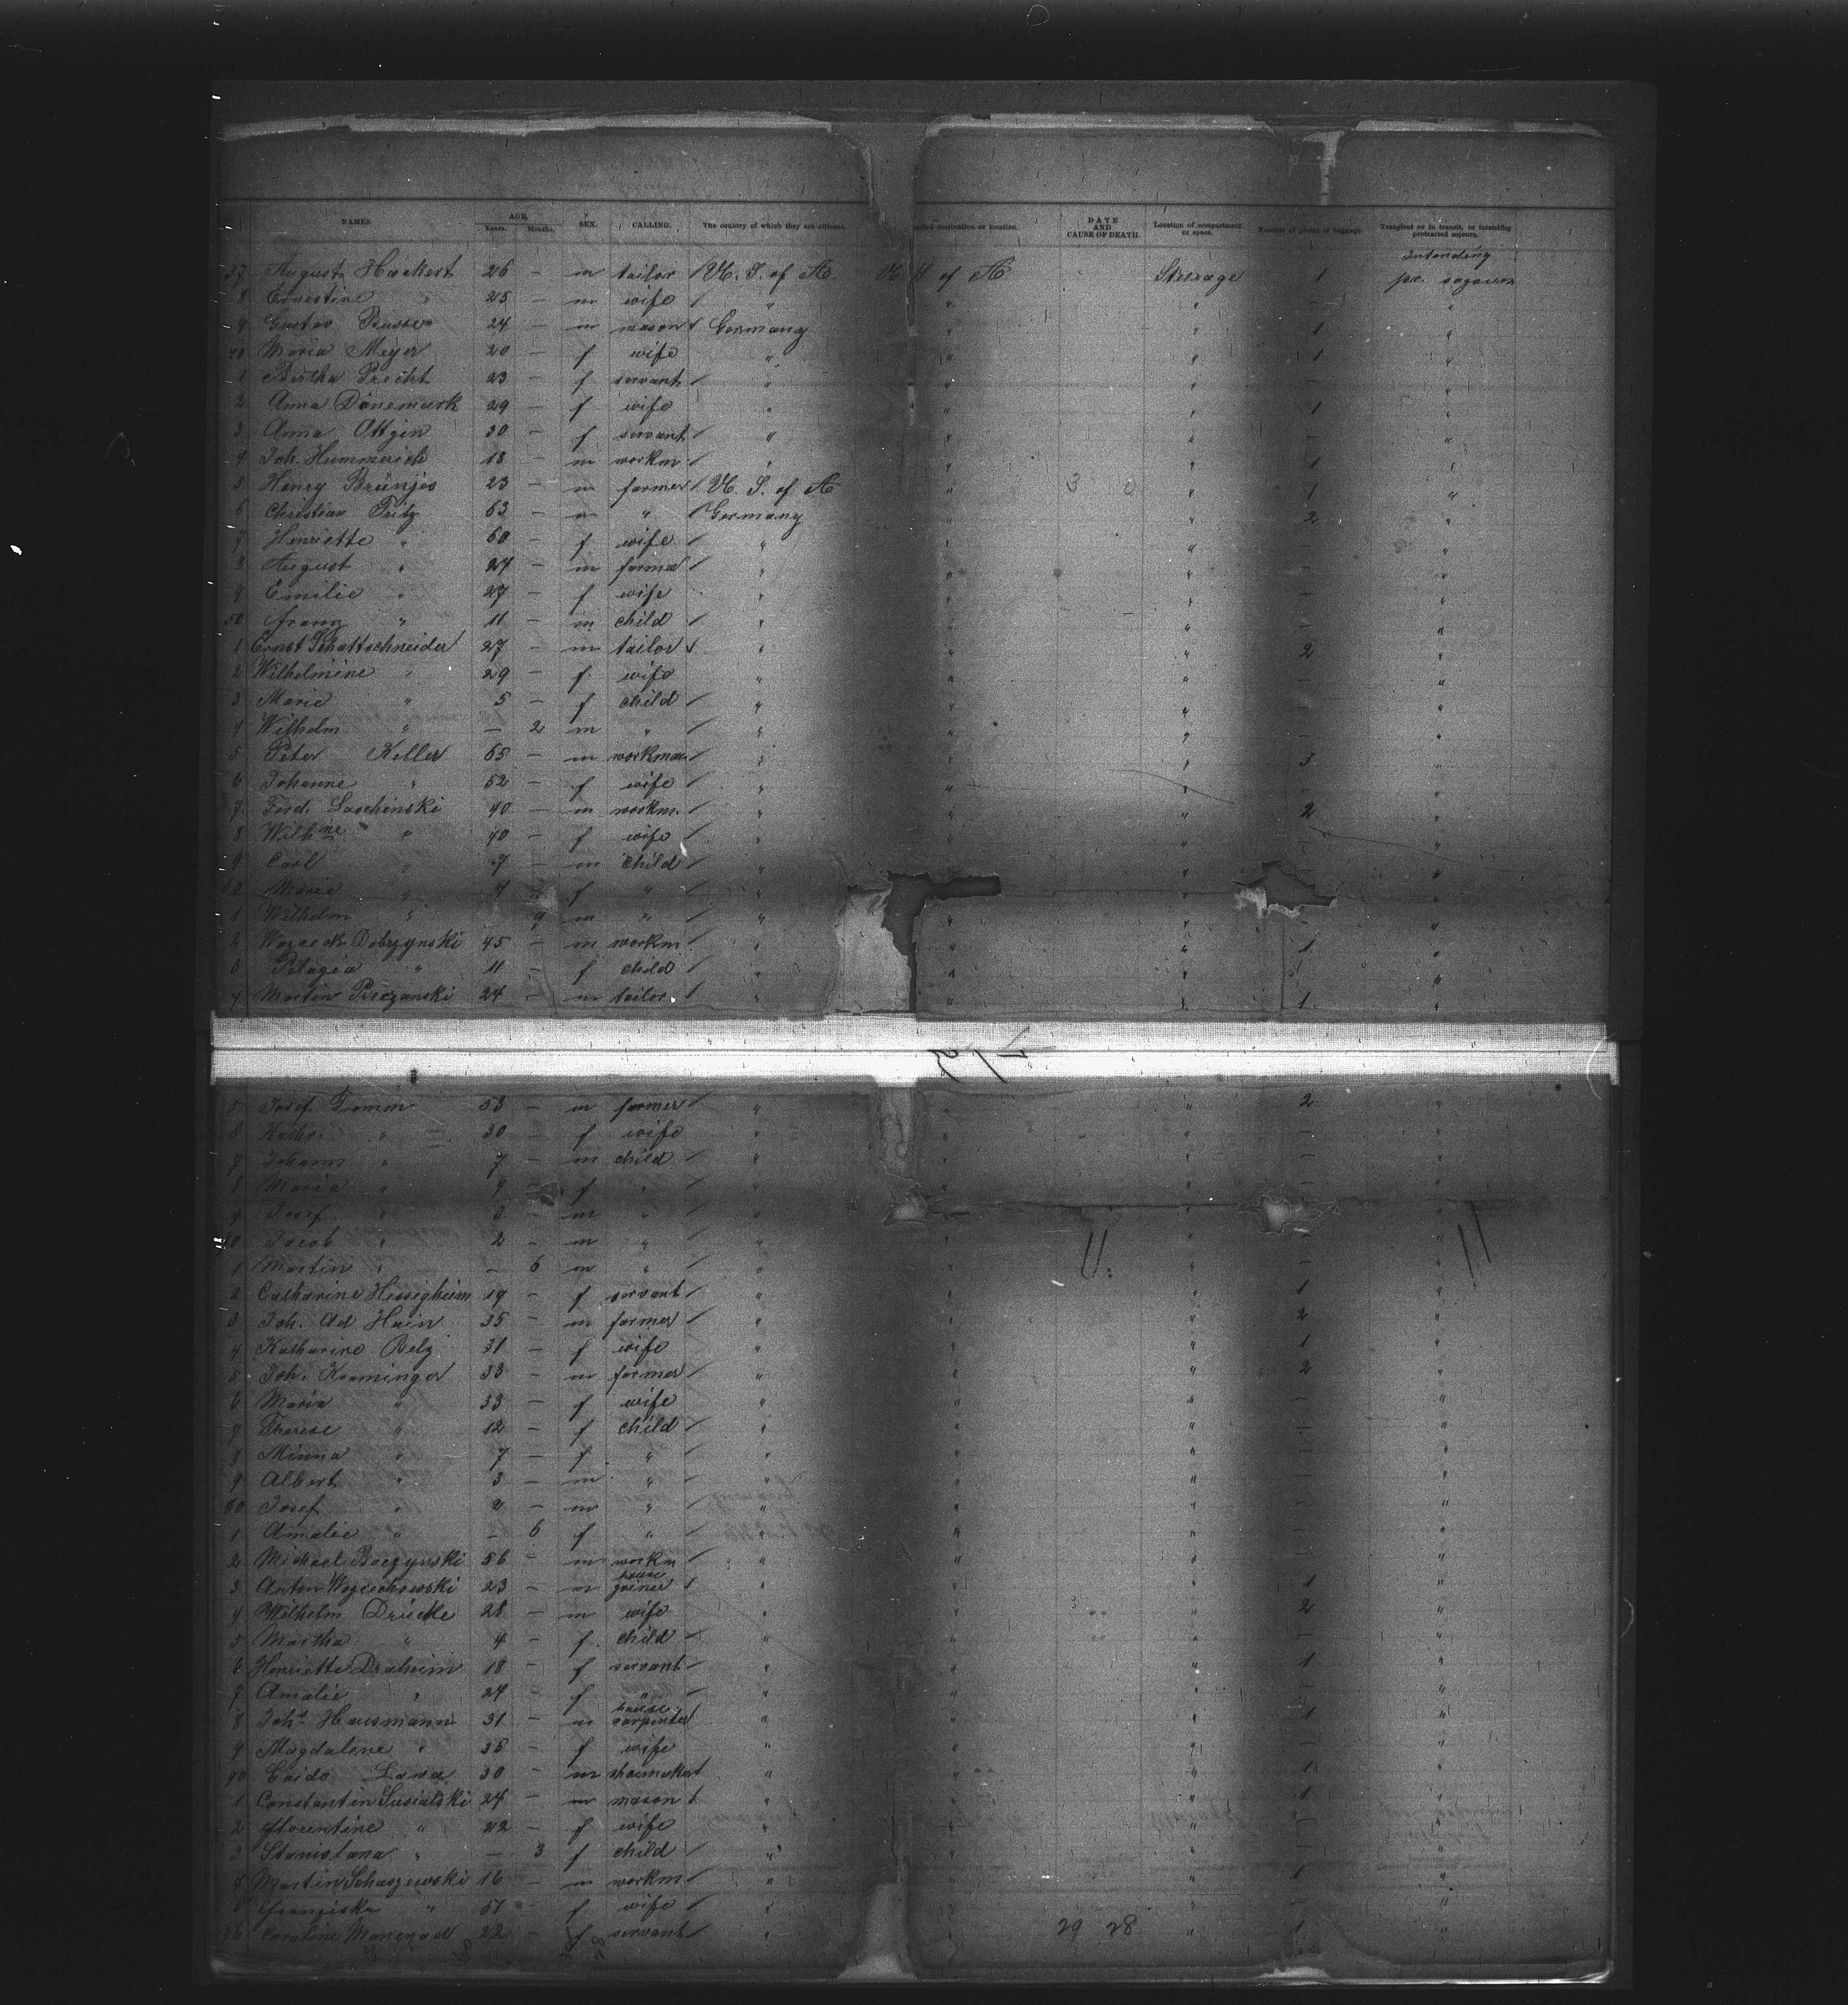 NAMES. AGE. Years. Months. SEX. CALLING. The country of which they are citizens. destination or location. DATE AND CAUSE OF DEATH. Location of compartment or space. Number of pieces of baggage. Transient or in transit, or intending protracted sojourn.
Intending
37 August Hackert 26 – m tailor U. S. of A. of A Steerage 1 pr. sogourn
8 Ernestine " 25 – m wife " " " – "
9 Gustav 24 – m mason Germany " " 1 "
40 Maria Meyer 20 – f wife " " " 1 "
1 Bertha Precht 23 – f servant " " " – "
2 Anna Dänemark 29 – f wife " " " 1 "
3 Anna Ottgen 30 – f servant " " " – "
4 Joh. Hummerich 18 – m workm " " " 1 "
5 Henry Brünjes 23 – m farmer U. S. of A " 3 0 " 1 "
6 Christian Fritz 63 – m " Germany " " 2 "
7 Henriette " 60 – f wife " " " – "
8 August " 24 – m farmer " " " – "
9 Emilie " 27 – f wife " " " – "
50 Franz " 11 – m child " " " – "
1 Ernst Schattschneider 27 – m tailor " " " 2 "
2 Wilhelmine " 29 – f wife " " " – "
3 Marie " 5 – f child " " " – "
4 Wilhelm " – 2 m " " " " – "
5 Peter Keller 65 – m workman " " " 3 "
6 Johanne " 52 – f wife " " " – "
7 Ferd. Laschinski 40 – m workm. " " " 2 "
8 Wilhme " 40 – f wife " " " – "
9 Carl " 7 – m child " " " "
60 Maria " 4 f " " " "
1 Wilhelm " 9 m " " " " – "
2 Dobrzynski 45 – m workm " " " 1 "
3 Pelagia " 11 – f child " " "
4 Martin 24 – m tailor " " " 1 "
5 Josef Fromm 53 – m farmer " " 2 "
6 Kath. " 30 – f wife " " " – "
7 Johann " 7 – m child " " " – "
8 Maria " f " " " " – "
9 Josef " 3 – m " " " "
70 Jacob " 2 – m " " " " – "
1 Martin " – 6 m " " " " – "
2 Catharine Hessigheim 19 – f servant " " " 1 "
3 Joh. Ad Hain 35 – m farmer " " " 2 "
4 Katharine Belz 31 – f wife " " " 1 "
5 Joh. Kraminger 33 – m farmer " " " 2 "
6 Maria " 33 – f wife " " " – "
7 Therese " 12 – f child " " " – "
8 Minna " 7 – f " " " " – "
9 Albert " 3 – m " " " " – "
80 Josef " 2 – m " " " " – "
1 Amalie " – 6 f " " " " – "
2 Michael Baczynski 56 – m workm " " " – "
3 Anton Wojciechowski 23 – m house joiner " " " 1 "
4 Wilhelm Drücke 28 – m wife " " 3 " 2 "
5 Martha " 4 – f child " " " – "
6 Henriette Draheim 18 – f servant " " " 1 "
7 Amalie " 24 – f " " " " – "
8 Johs Hausmann 31 – m house carpenter " " " 1 "
9 Magdalene " 35 – f wife " " " – "
90 Guido 30 – m shoemaker " " " 1 "
1 Constantin Susialski 24 – m mason " " " 1 "
2 Florentine " 22 – f wife " " " – "
3 Stanislana " – 3 f child " " " – "
4 Martin Schaszewski 16 – m workm " " " 1 "
5 Franziska " 51 – f wife " " " – "
96 Caroline 22 – f servant " " 29 28 " 1 "